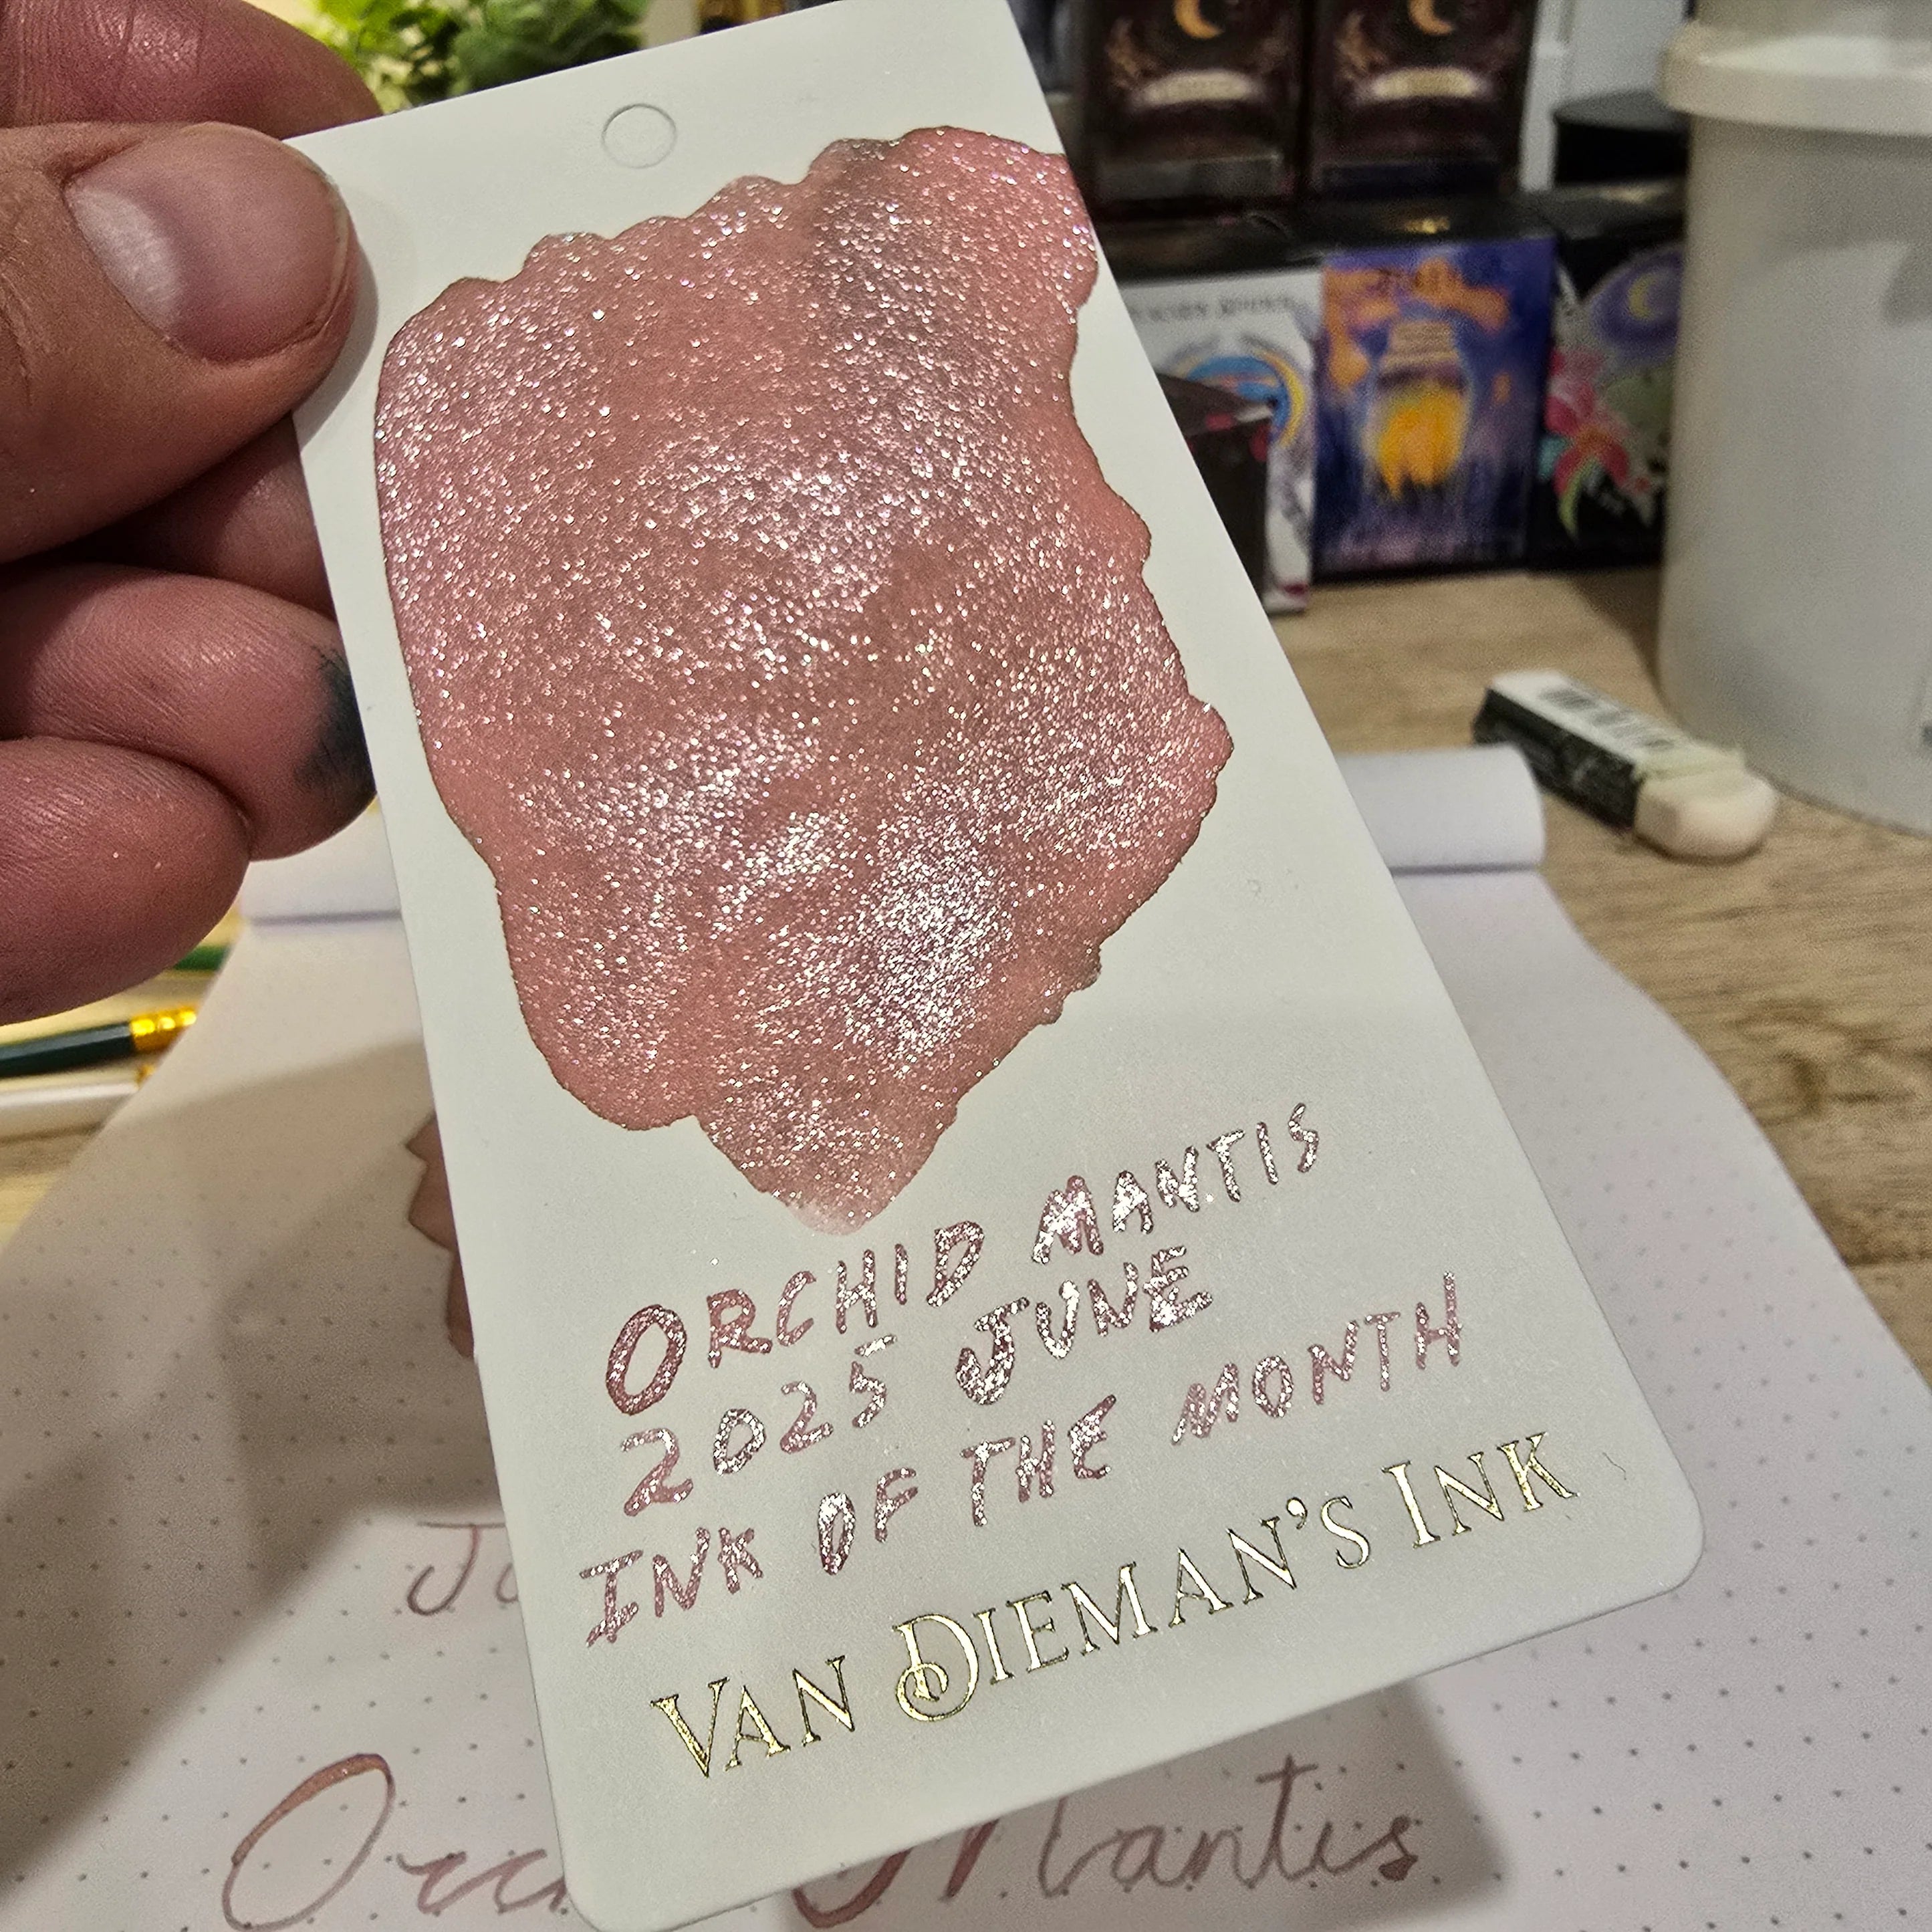 ORCHID MANTIS
2025 JUNE
INK OF THE MONTH
VAN DIEMAN'S INK
Mantis